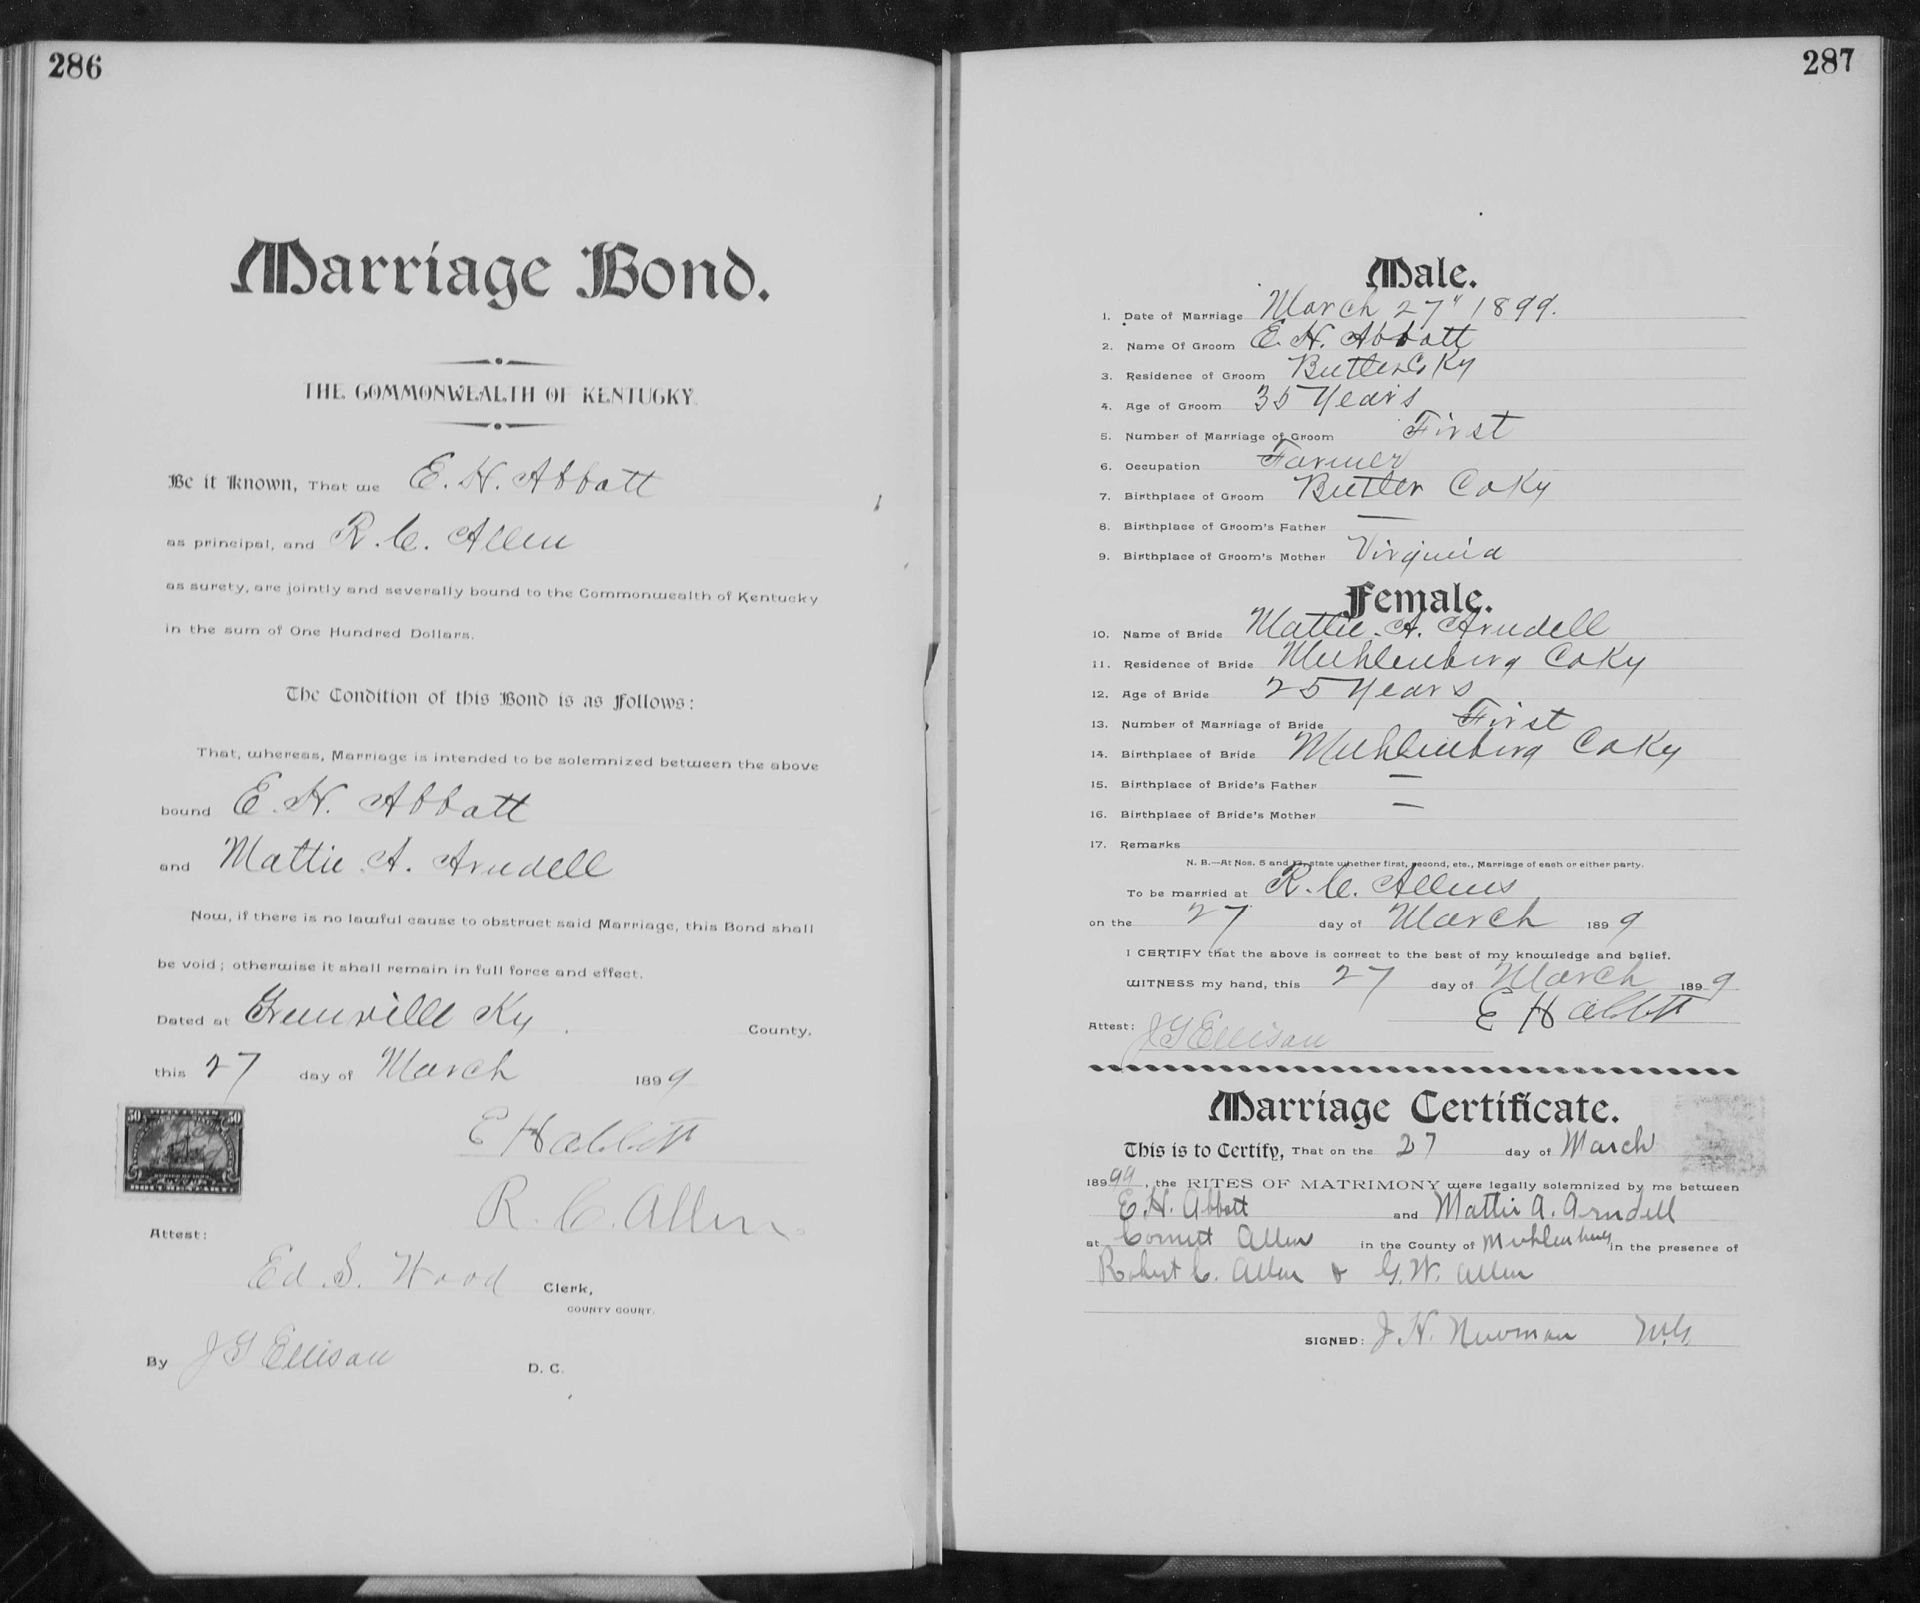 286
Marriage Bond.
THE COMMONWEALTH OF KENTUCKY.
Be it Known, That we E. H. Abbott
as principal, and R. C. Allen
as surety, are jointly and severally bound to the Commonwealth of Kentucky
in the sum of One Hundred Dollars.
The Condition of this Bond is as Follows:
That, whereas, Marriage is intended to be solemnized between the above
bound E. H. Abbott
and Mattie A. Arndell
Now, if there is no lawful cause to obstruct said Marriage, this Bond shall
be void; otherwise it shall remain in full force and effect.
Dated at Greenville Ky. County,
this 27 day of March 1899
50 FIFTY CENTS 50
DOCUMENTARY
E H Abbott
R. C. Allen
Attest:
Ed. S. Wood Clerk,
COUNTY COURT.
By J G Ellison D. C.
287
Male.
1. Date of Marriage March 27" 1899.
2. Name Of Groom E. H. Abbott
3. Residence of Groom Butler Co Ky
4. Age of Groom 35 Years
5. Number of Marriage of Groom First
6. Occupation Farmer
7. Birthplace of Groom Butler Co Ky
8. Birthplace of Groom's Father —
9. Birthplace of Groom's Mother Virginia
Female.
10. Name of Bride Mattie A. Arndell
11. Residence of Bride Muhlenberg Co Ky
12. Age of Bride 25 Years
13. Number of Marriage of Bride First
14. Birthplace of Bride Muhlenberg Co Ky
15. Birthplace of Bride's Father —
16. Birthplace of Bride's Mother —
17. Remarks
N. B.—At Nos. 5 and 13, state whether first, second, etc., Marriage of each or either party.
To be married at R. C. Allens
on the 27 day of March 1899
I CERTIFY that the above is correct to the best of my knowledge and belief.
WITNESS my hand, this 27 day of March 1899
E H Abbott
Attest: J G Ellison
Marriage Certificate.
This is to Certify, That on the 27 day of March
18999, the RITES OF MATRIMONY were legally solemnized by me between
E. H. Abbott and Mattie A. Arndell
at Allen in the County of Muhlenberg in the presence of
Robert C. Allen & G. W. Allen
SIGNED: J. H. Newman M.G.